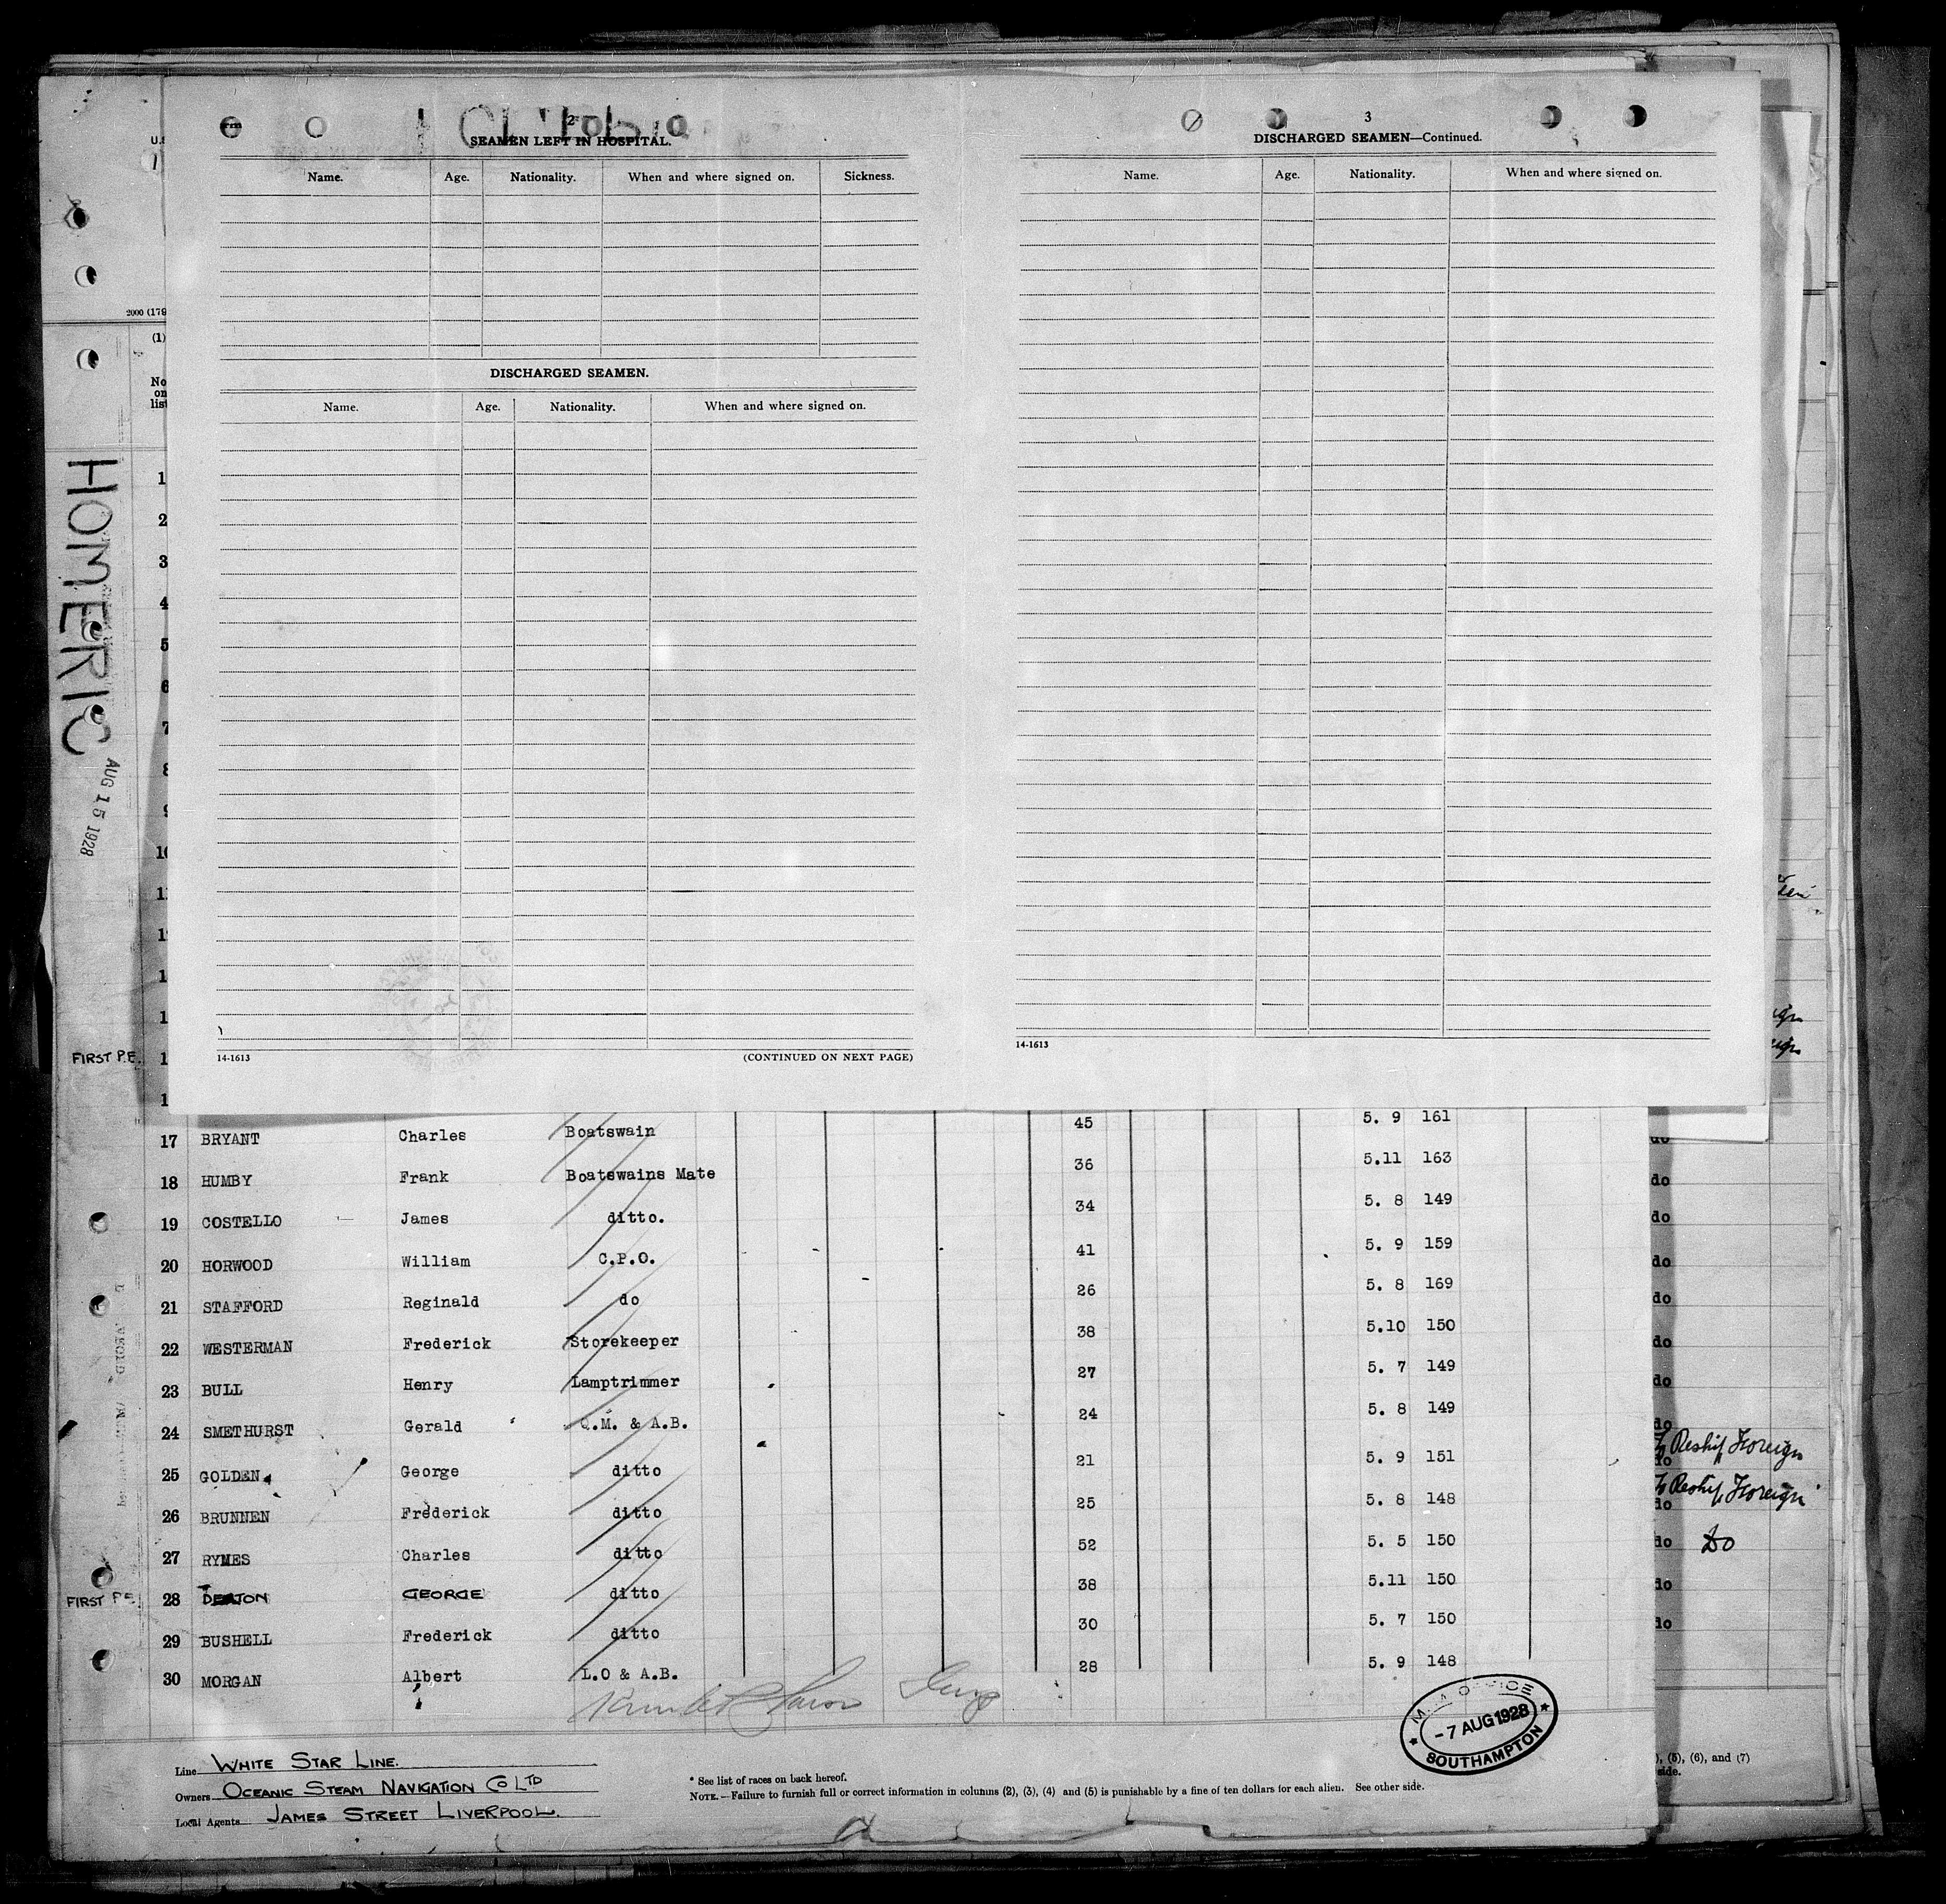 2
SEAMEN LEFT IN HOSPITAL.
Name. Age. Nationality. When and where signed on. Sickness.
DISCHARGED SEAMEN.
Name. Age. Nationality. When and where signed on.
14-1613 (CONTINUED ON NEXT PAGE)
3
DISCHARGED SEAMEN—Continued.
Name. Age. Nationality. When and where signed on.
14-1613
2000 (179
(1)
No
on
list
HOMERIC
AUG 15 1928
1
2
3
4
5
6
7
8
9
10
11
FIRST P.E.
17 BRYANT Charles Boatswain 45 5. 9 161
18 HUMBY Frank Boatswains Mate 36 5.11 163 do
19 COSTELLO James ditto. 34 5. 8 149 do
20 HORWOOD William C.P.O. 41 5. 9 159 do
21 STAFFORD Reginald do 26 5. 8 169 do
22 WESTERMAN Frederick Storekeeper 38 5.10 150 do
23 BULL Henry Lamptrimmer 27 5. 7 149 do
24 SMETHURST Gerald Q.M. & A.B. 24 5. 8 149 do
Reship Foreign
25 GOLDEN George ditto 21 5. 9 151 do
Reship Foreign
26 BRUNNEN Frederick ditto 25 5. 8 148 do
27 RYMES Charles ditto 52 5. 5 150 do Do
FIRST P.E. 28 DEATON GEORGE ditto 38 5.11 150 do
29 BUSHELL Frederick ditto 30 5. 7 150 do
30 MORGAN Albert L.O & A.B. 28 5. 9 148
OFFICE
-7 AUG 1928
SOUTHAMPTON
Line WHITE STAR LINE.
Owners OCEANIC STEAM NAVIGATION CO LTD
Local Agents JAMES STREET LIVERPOOL.
* See list of races on back hereof.
NOTE.—Failure to furnish full or correct information in columns (2), (3), (4) and (5) is punishable by a fine of ten dollars for each alien. See other side.
(5), (6), and (7)
side.